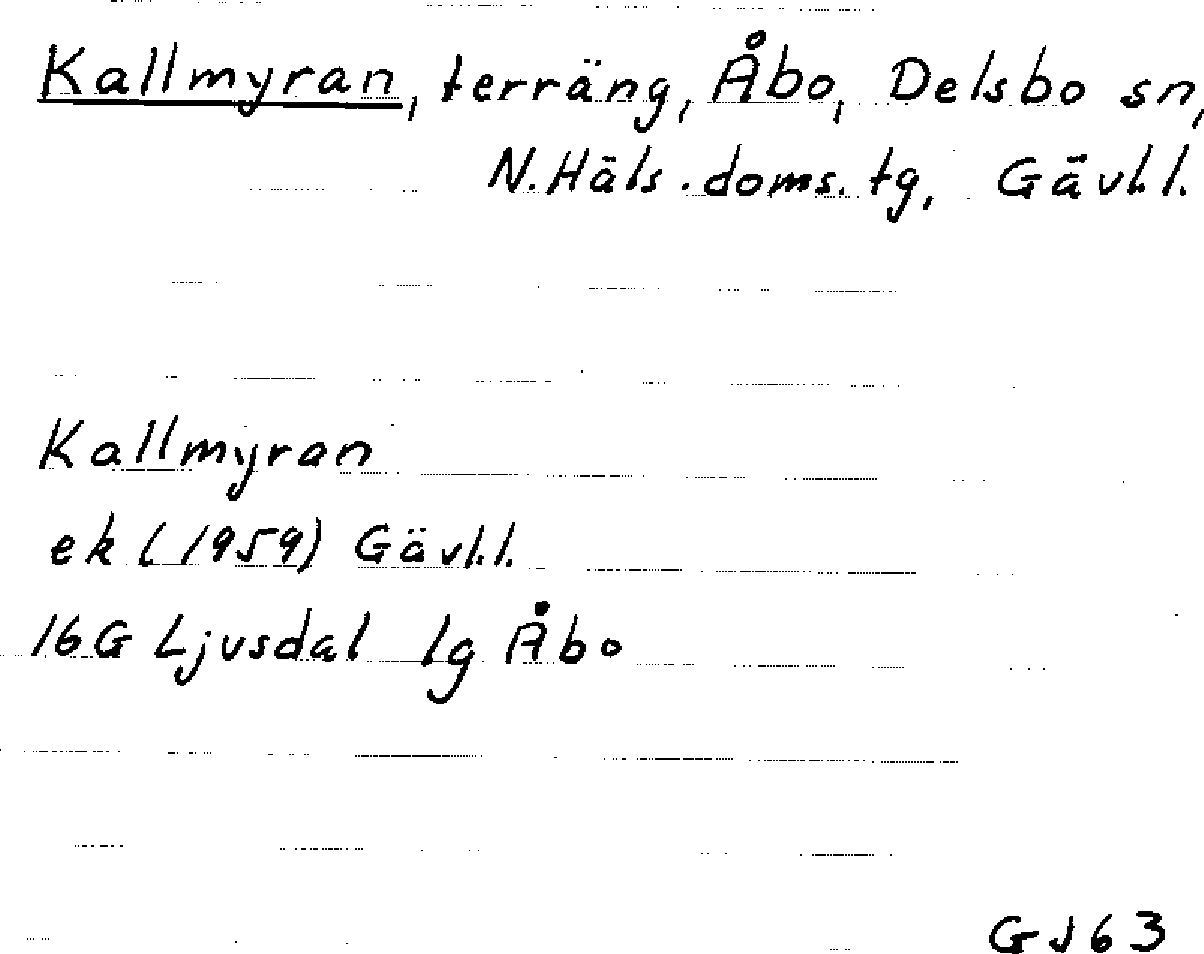 Kallmyran, terräng, Åbo, Delsbo sn,
N.Häls.doms.tg, Gävl.l.
Kallmyran
ek (1959) Gävl.l.
16G Ljusdal lg Åbo
GJ63